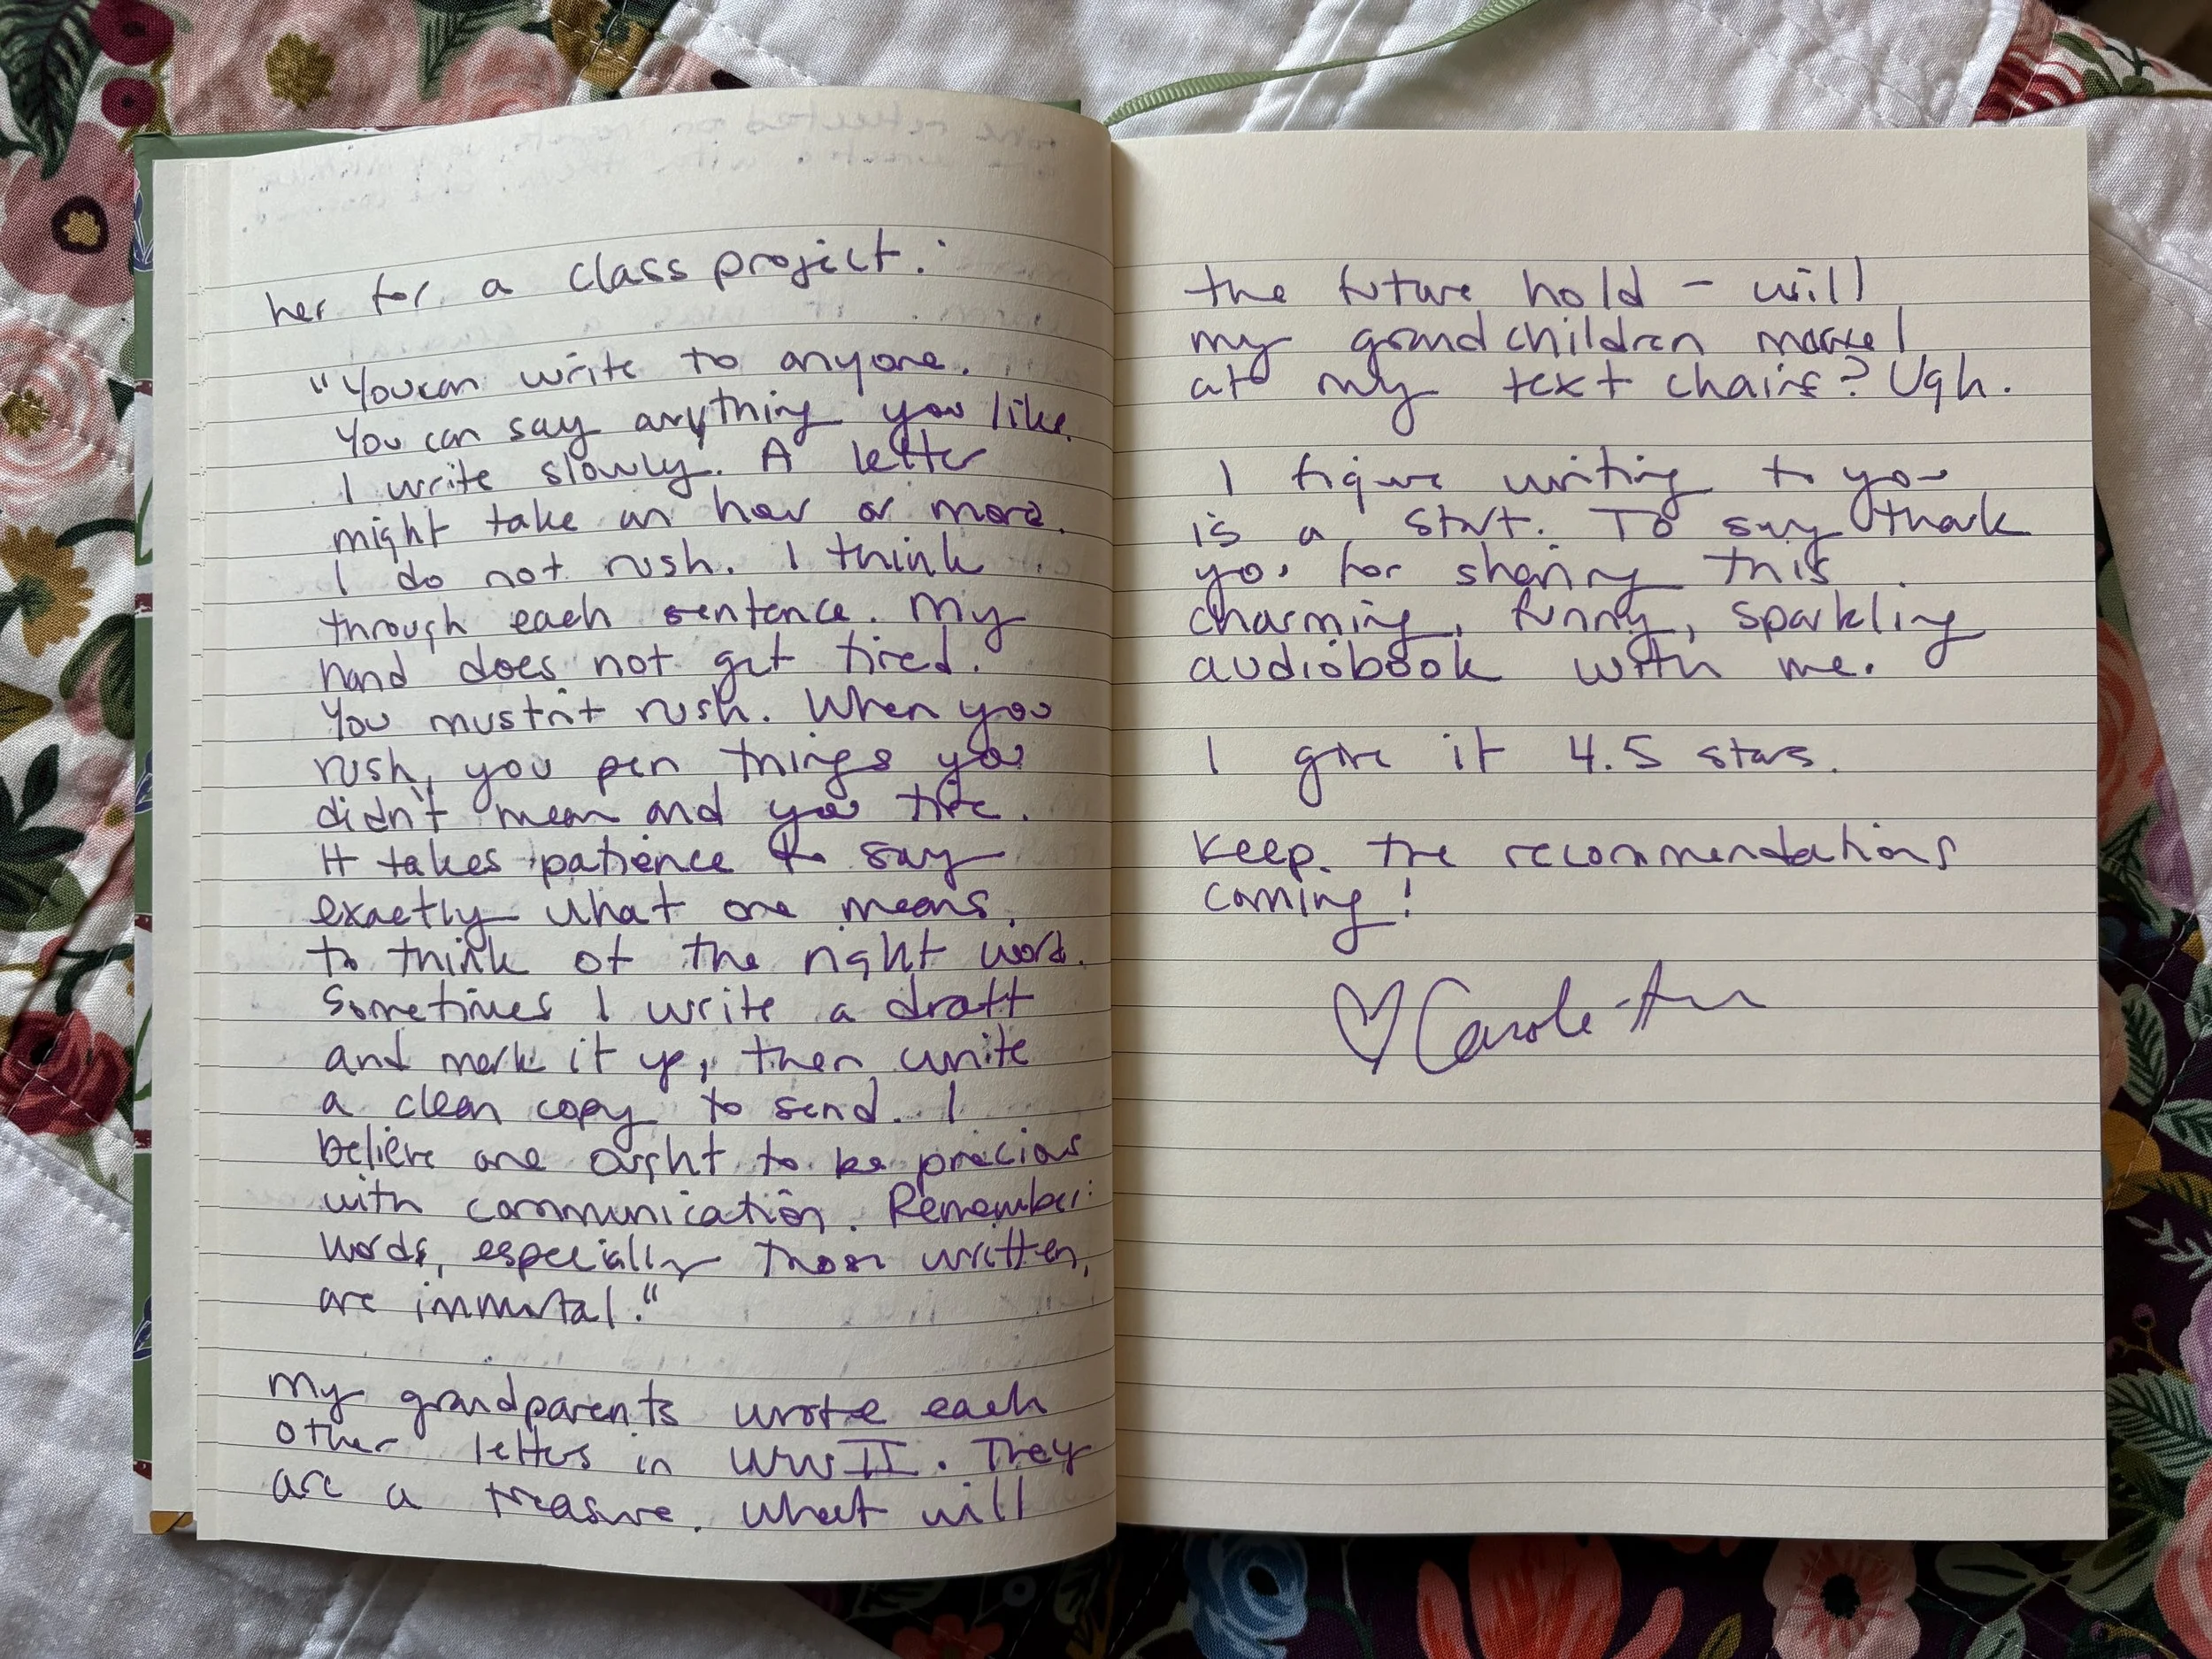 her for a class project:
"You can write to anyone.
You can say anything you like.
I write slowly. A letter
might take an hour or more.
I do not rush. I think
through each sentence. My
hand does not get tired.
You mustn't rush. When you
rush, you pen things you
didn't mean and you tire.
It takes patience to say
exactly what one means,
to think of the right word.
Sometimes I write a draft
and mark it up, then write
a clean copy to send. I
believe one ought to be precious
with communication. Remember:
words, especially those written,
are immortal."
My grandparents wrote each
other letters in WWII. They
are a treasure. What will
the future hold - will
my grandchildren marvel
at my text chains? Ugh.
I figure writing to you
is a start. To say thank
you for sharing this
charming, funny, sparkling
audiobook with me.
I give it 4.5 stars.
Keep the recommendations
coming!
♡ Carole-Ann